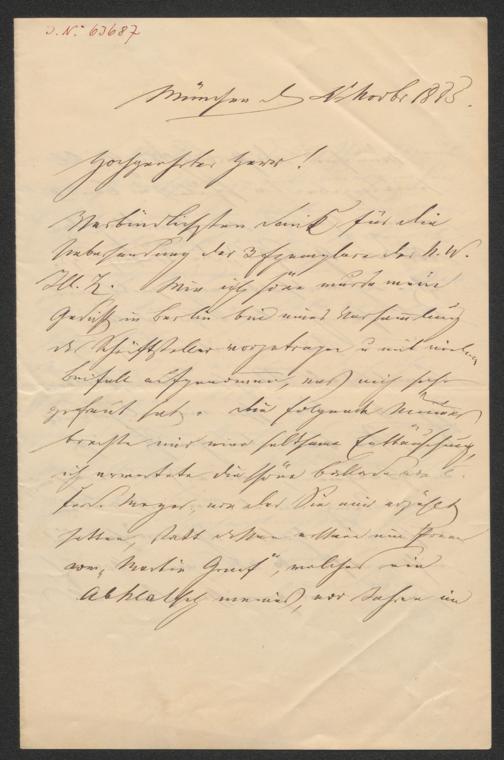 J. N. 63687
München d. Novbr 1883.
Hochgeehrter Herr!
Verbindlichsten Dank für die
Uebersendung der 3 Exemplare der N. W.
Ill. Z. Wie ich höre wurde mein
Gedicht in Berlin bei einer Versammlung
der Schriftsteller vorgetragen u mit vielem
Beifall aufgenommen, was mich sehr
gefreut hat. Die folgende Nummer
brachte mir eine seltsame Enttäuschung,
ich erwartete die schöne Ballade von C.
Ferd. Meyer, von der Sie mir erzählt
hatten, statt dessen ein
von „Martin Greif", welches ein
Abklatsch meines, vor Jahren im